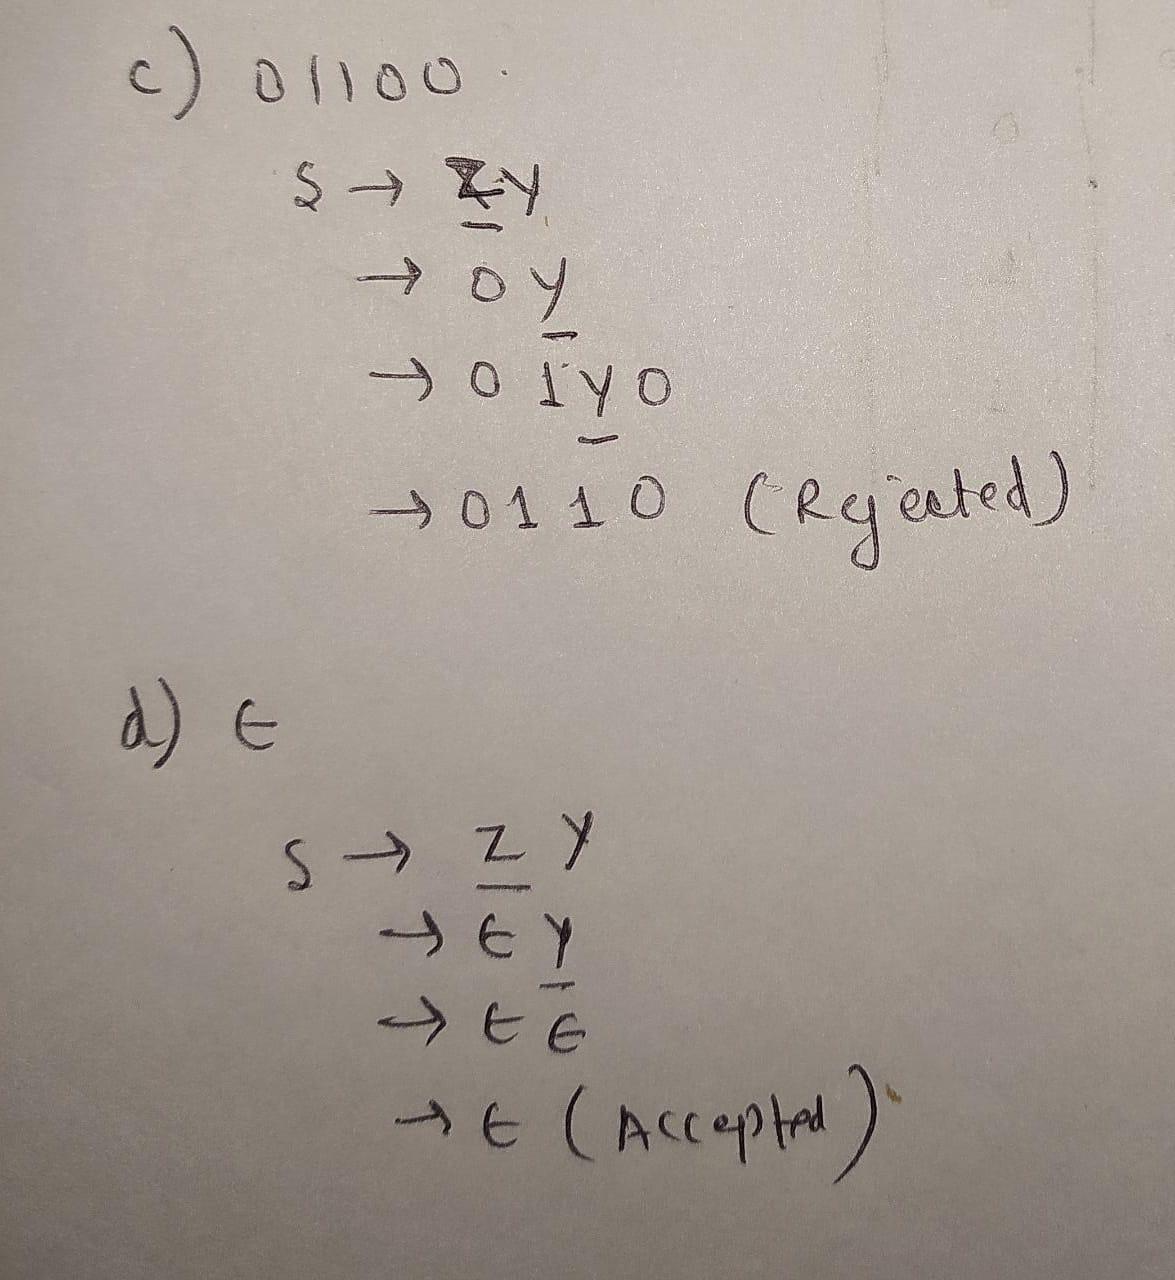 c) 01100.
S → ZY
→ 0Y
→ 01Y0
→ 0110 (Rejected)
d) ϵ
S → ZY
→ ϵY
→ ϵϵ
→ ϵ (Accepted)